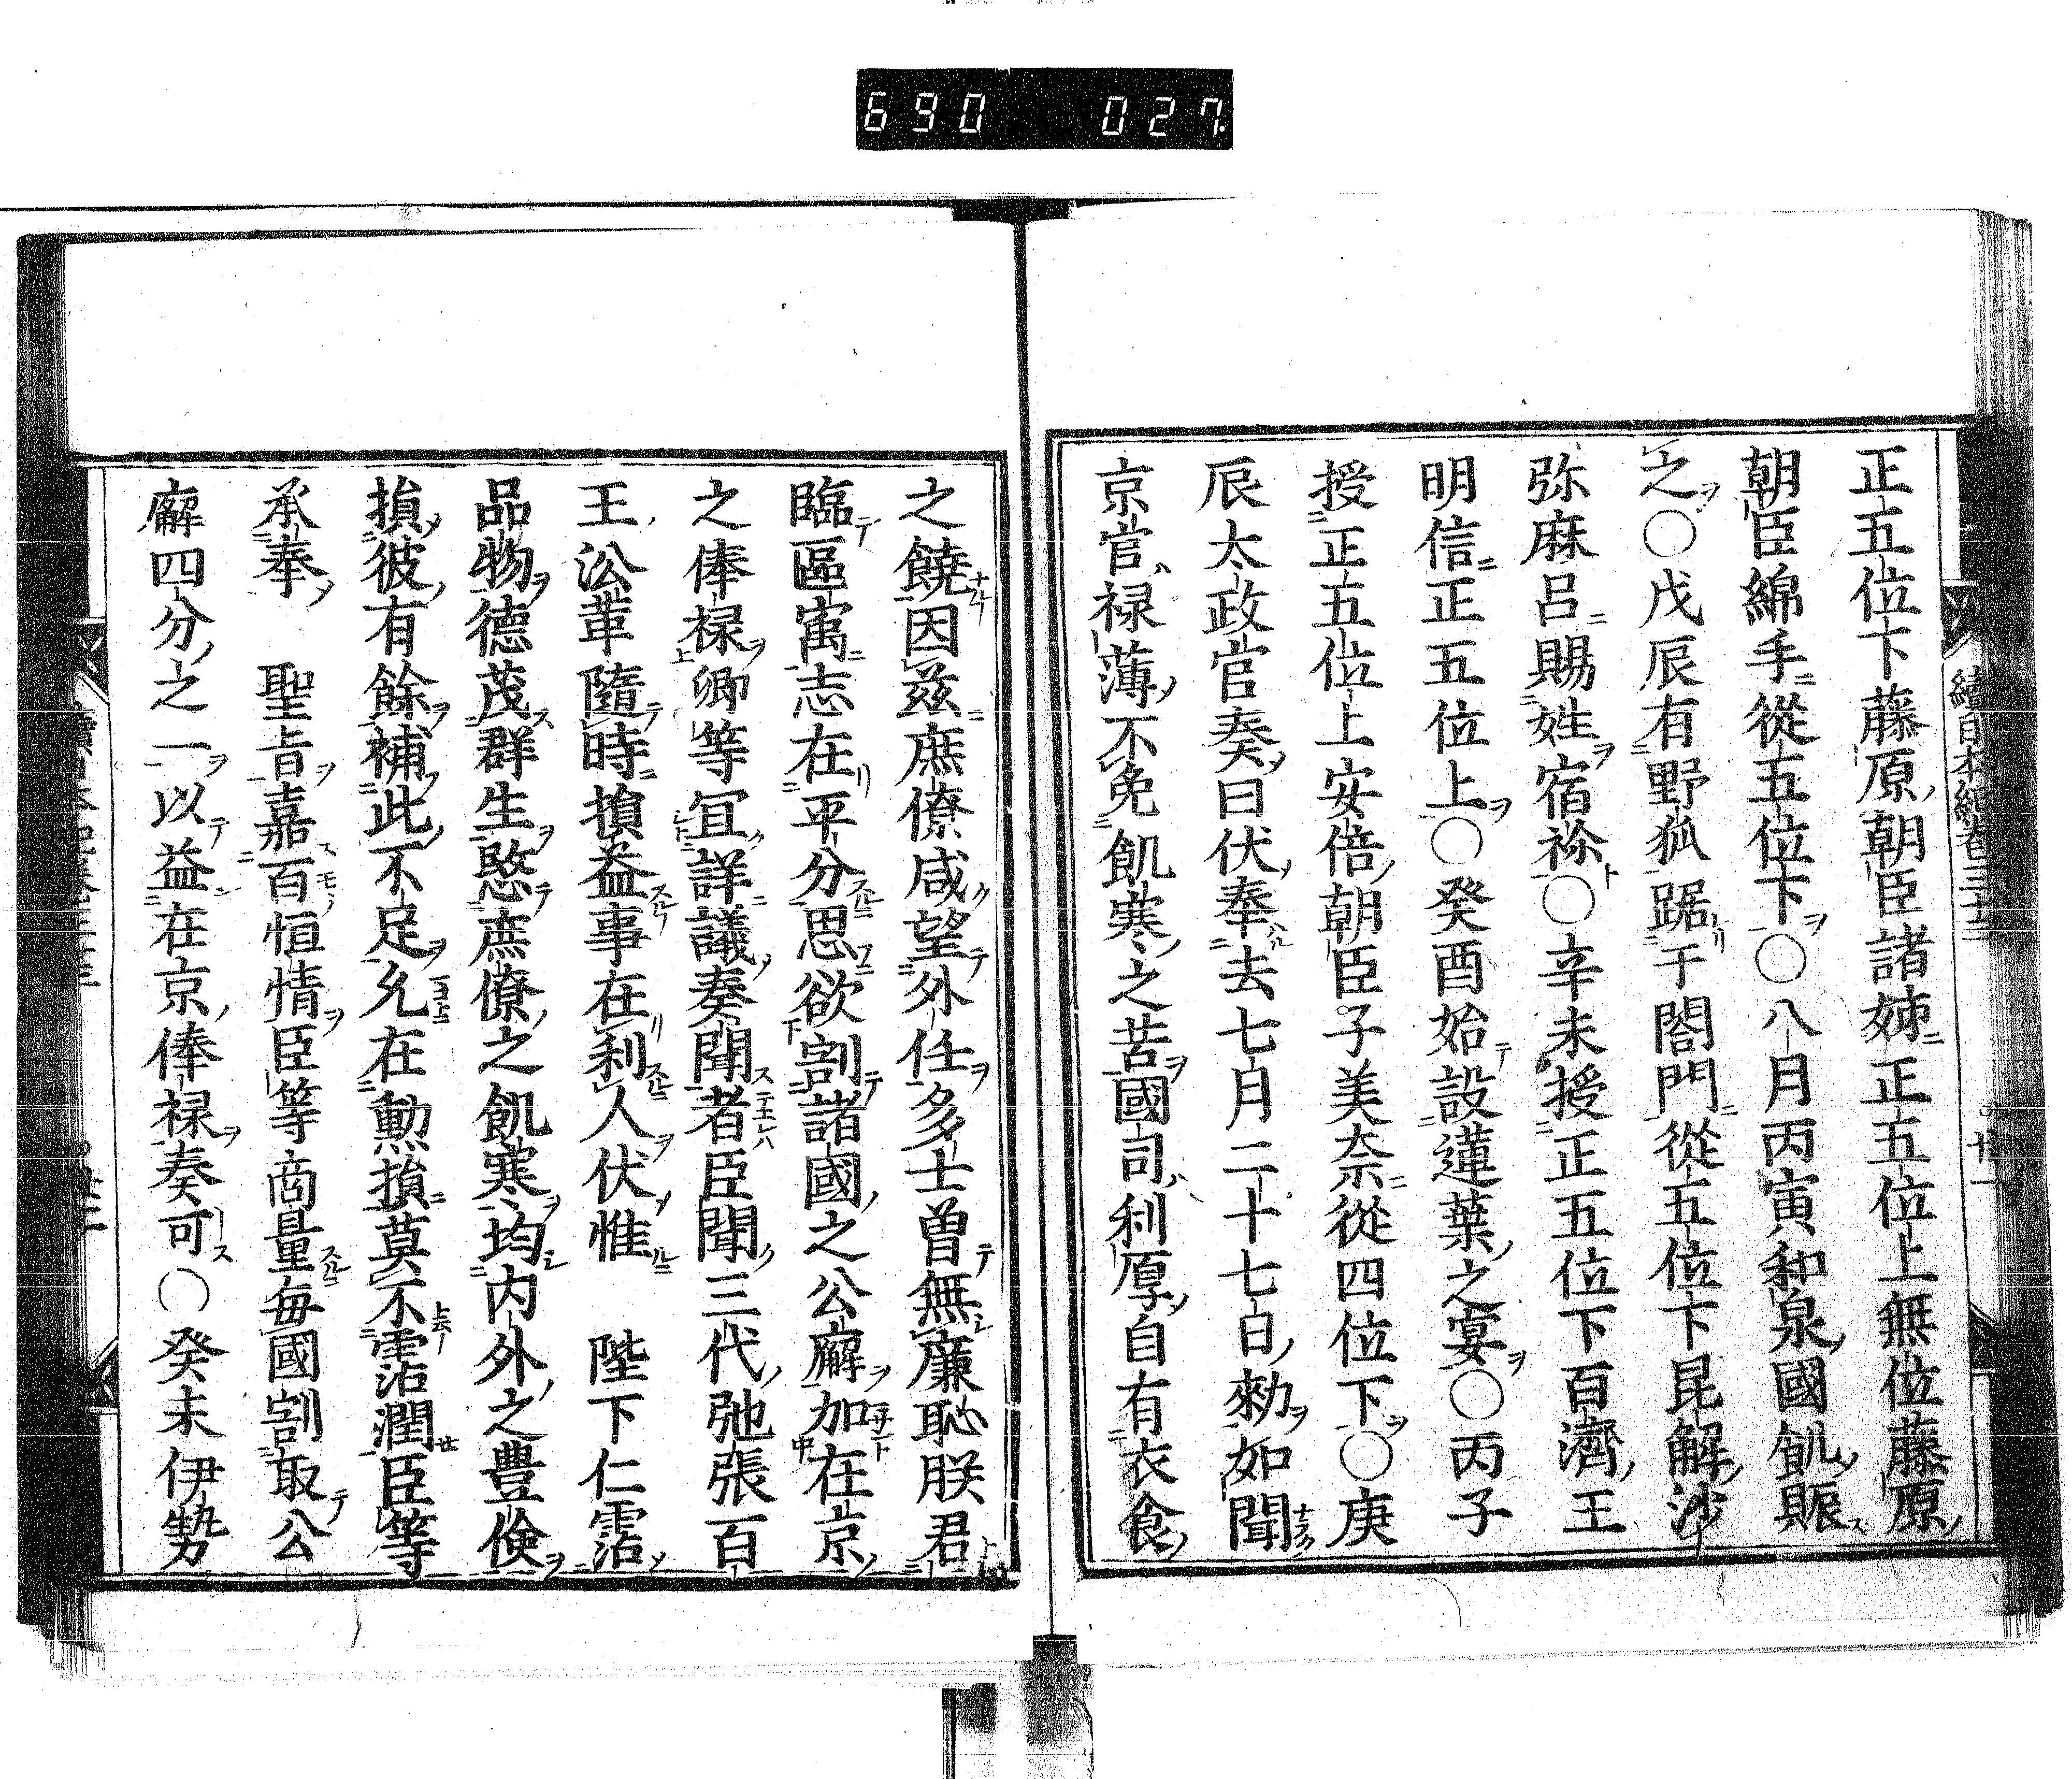 690 027
續日本紀卷三十三
廿一
正五位下藤原朝臣諸姊正五位上無位藤原
朝臣綿手從五位下○八月丙寅和泉國飢賑
之○戊辰有野狐踞于閤門從五位下昆解沙
弥麻呂賜姓宿祢○辛未授正五位下百濟王
明信正五位上○癸酉始設蓮葉之宴○丙子
授正五位上安倍朝臣子美奈從四位下○庚
辰太政官奏曰伏奉去七月二十七日勑如聞
京官禄薄不免飢寒之苦國司利厚自有衣食
之饒因茲庶僚咸望外任多士曽無廉恥朕君
臨區寓志在平分思欲割諸國之公廨加在京
之俸禄卿等宜詳議奏聞者臣聞三代弛張百
王㳂革隨時損益事在利人伏惟 陛下仁霑
品物德茂群生愍庶僚之飢寒均内外之豊倹
損彼有餘補此不足允在勲損莫不霑潤臣等
承奉 聖旨嘉百恒情臣等商量毎國割取公
廨四分之一以益在京俸禄奏可○癸未伊勢